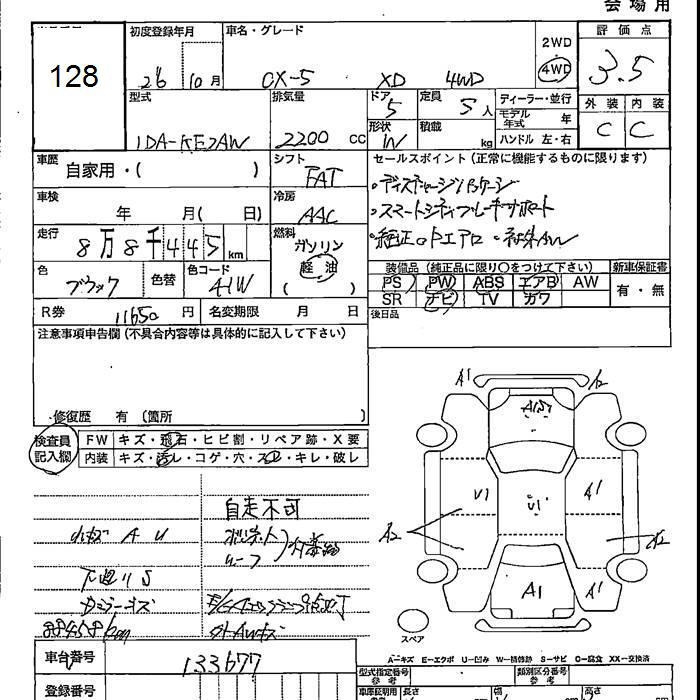 会場用
128
初度登録年月
26 10月
車名・グレード
CX-5 XD 4WD
2WD
4WD
評価点
3.5
外装 内装
C C
型式
LDA-KE2AW
排気量
2200 cc
ドア
5
形状
W
定員
5人
積載
kg
ディーラー・並行
モデル年式 年
ハンドル 左・右
車歴
自家用・( )
シフト
FAT
車検
年 月( 日)
冷房
AAC
走行
8万8千445km
燃料
ガソリン
軽油
( )
色
ブラック
色替
色コード
41W
R券
11650円
名変期限 月 日
セールスポイント(正常に機能するものに限ります)
・ディスチャージパッケージ
・スマートシティブレーキサポート
装備品(純正品に限り○をつけて下さい)
PS PW ABS エアB AW
SR ナビ TV カワ
新車保証書
有・無
後日品
注意事項申告欄(不具合内容等は具体的に記入して下さい)
修復歴 有(箇所 )
検査員記入欄
FW キズ・飛石・ヒビ割・リペア跡・X要
内装 キズ・汚レ・コゲ・穴・スレ・キレ・破レ
自走不可
小キズ A U
ルーフ
下廻りS
88458km
A1
A2
U1
U1
A1
A2
A1
A1
スペア
A-キズ E-エクボ U-凹み W-補修跡 S-サビ C-腐食 XX-交換済
車台番号
133677
登録番号
型式指定番号
参考
類別区分番号
参考
長さ